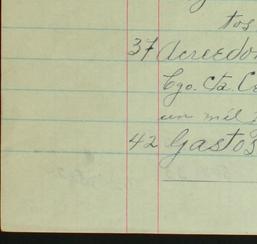 tos
37 Acreedor
Cgo. Cta. Co
un mil
42 Gastos